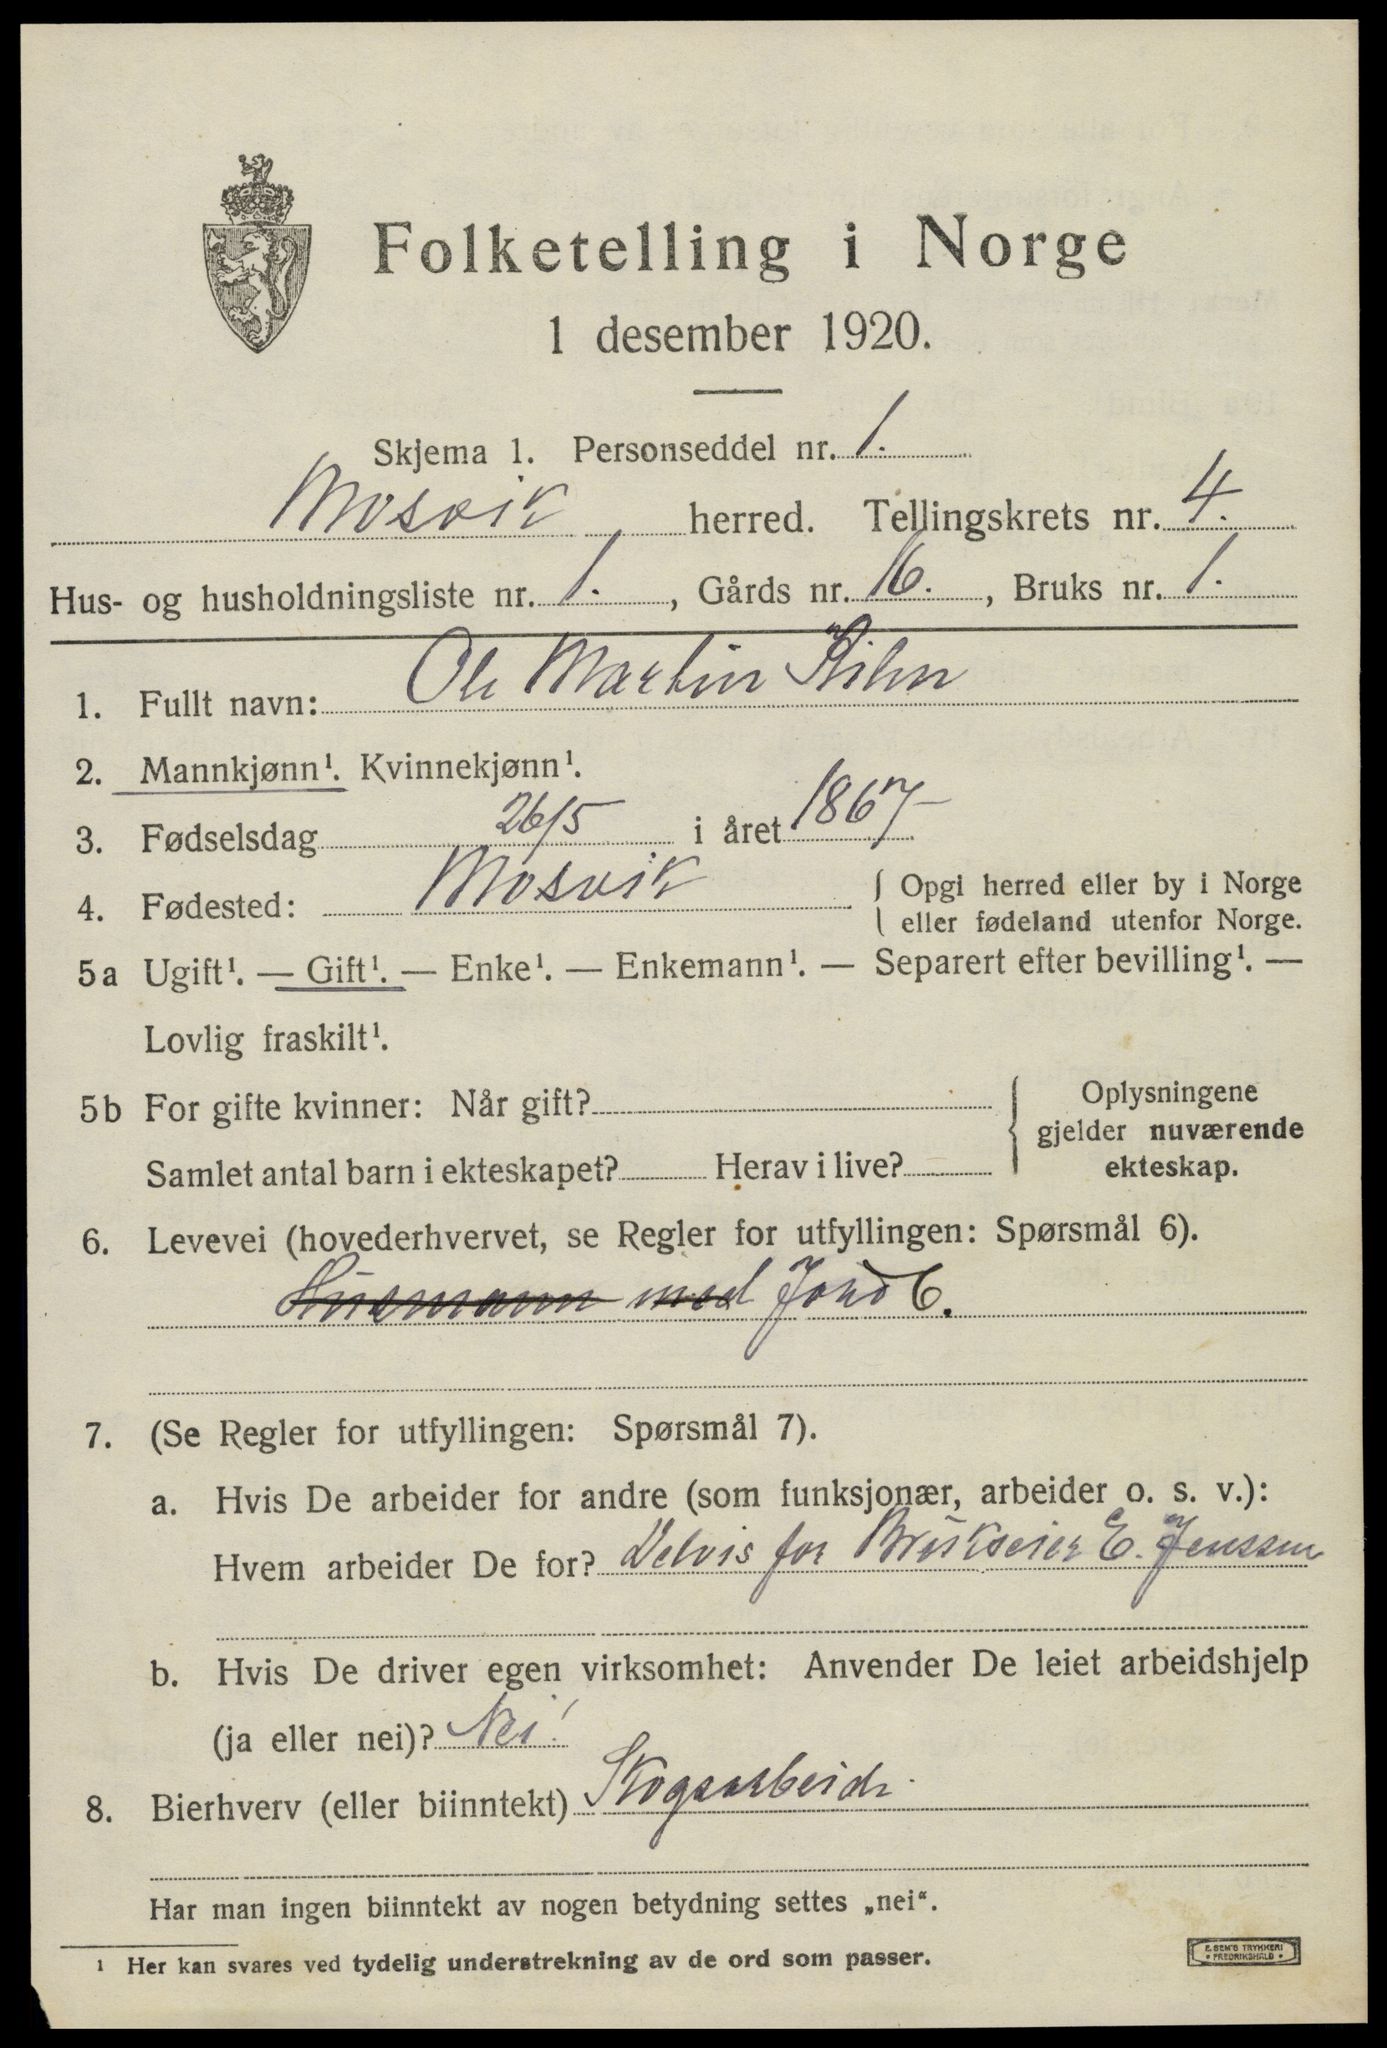 Folketelling i Norge
1 desember 1920.
Skjema 1. Personseddel nr. 1.
Mosvik herred. Tellingskrets nr. 4.
Hus- og husholdningsliste nr. 1. , Gårds nr. 16. , Bruks nr. 1.
1. Fullt navn: Ole Martin
2. Mannkjønn¹. Kvinnekjønn¹.
3. Fødselsdag 26/5 i året 1867
4. Fødested: Mosvik
{ Opgi herred eller by i Norge
eller fødeland utenfor Norge.
5a Ugift¹. — Gift¹. — Enke¹. — Enkemann¹. — Separert efter bevilling¹. —
Lovlig fraskilt¹.
5b For gifte kvinner: Når gift?
Samlet antal barn i ekteskapet? Herav i live?
{ Oplysningene
gjelder nuværende
ekteskap.
6. Levevei (hovederhvervet, se Regler for utfyllingen: Spørsmål 6).
Husmann med Jord C.
7. (Se Regler for utfyllingen: Spørsmål 7).
a. Hvis De arbeider for andre (som funksjonær, arbeider o. s. v.):
Hvem arbeider De for? Delvis for Brukseier E. Jenssen
b. Hvis De driver egen virksomhet: Anvender De leiet arbeidshjelp
(ja eller nei)? Nei!
8. Bierhverv (eller biinntekt) Skogsarbeide.
Har man ingen biinntekt av nogen betydning settes „nei“.
¹ Her kan svares ved tydelig understrekning av de ord som passer.
E. SEM'S TRYKKERI
• FREDRIKSHALD •